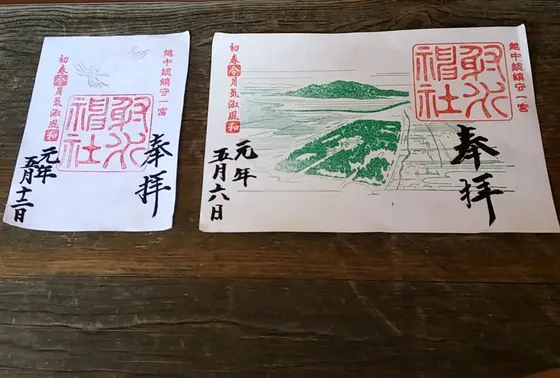 越中総鎮守一宮
奉拝
射水
神社
初春令月気淑風和
元年
五月十二日
越中総鎮守一宮
奉拝
射水
神社
初春令月気淑風和
元年
五月六日